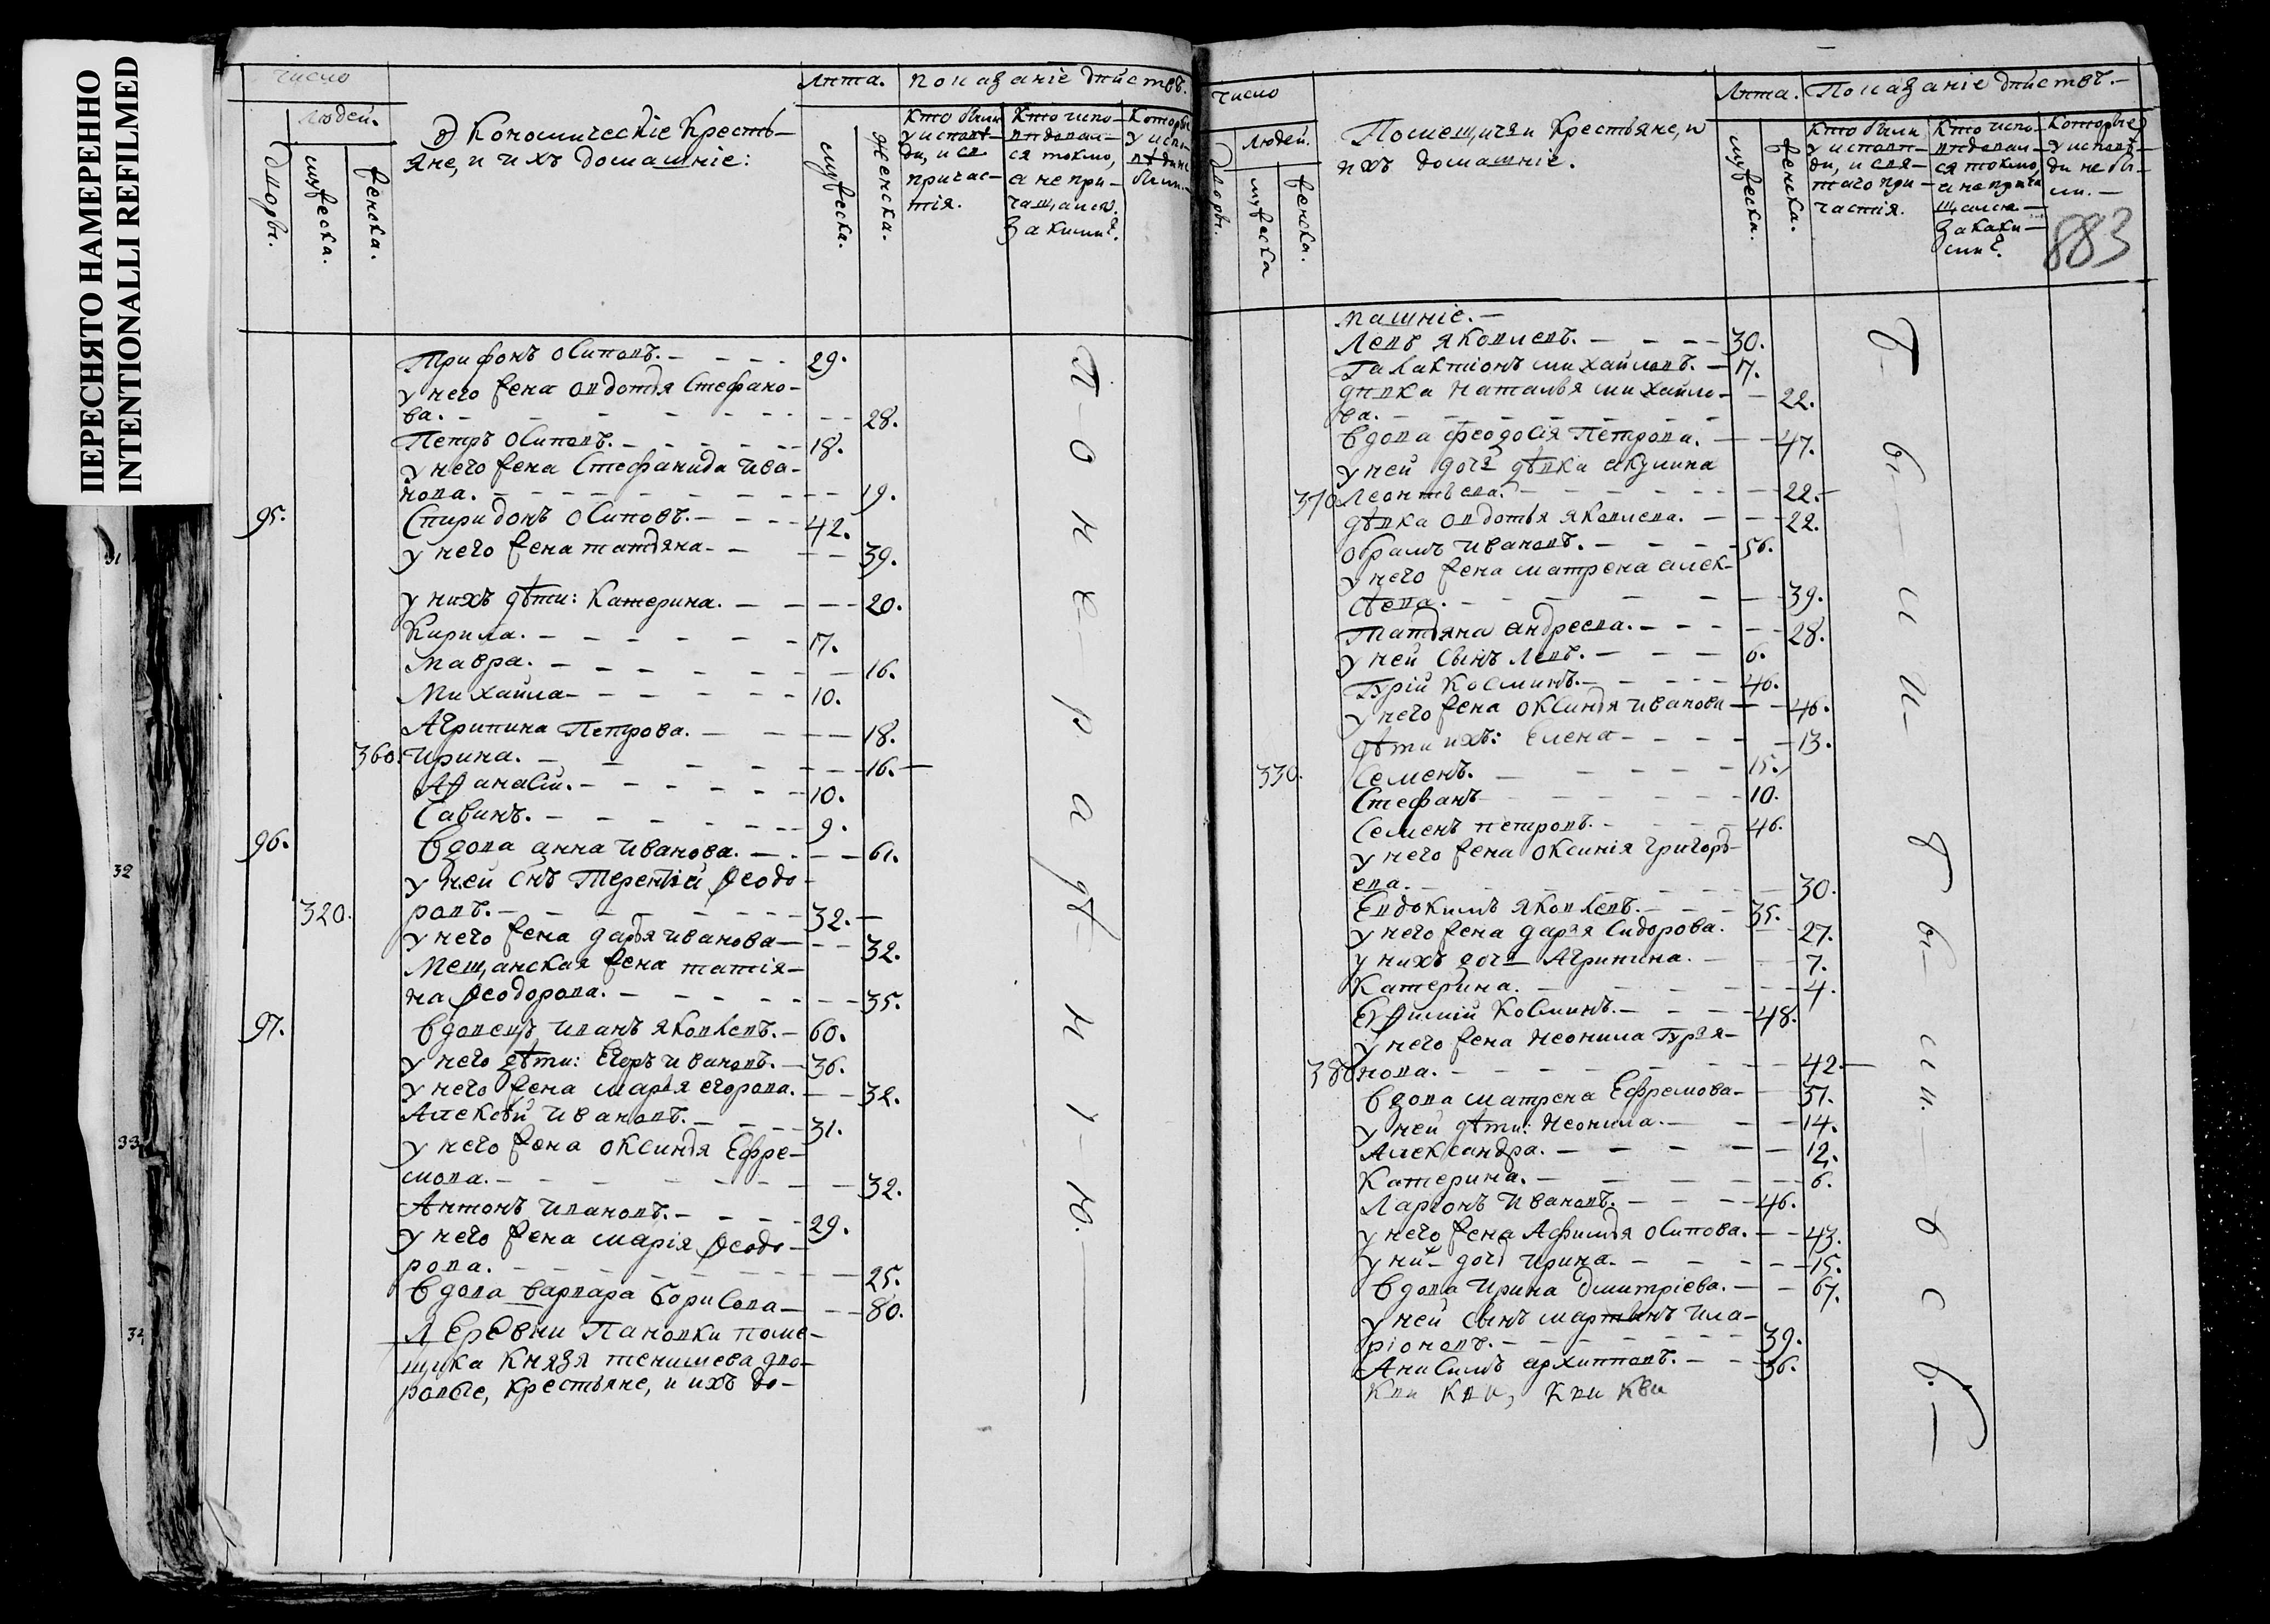 ПЕРЕСНЯТО НАМЕРЕННО
INTENTIONALLI REFILMED
31
32
33
34
число
людей.
дворы.
мужеска.
женска.
Экономическіе кресть-
яне, и ихъ домашніе:
лѣта.
мужеска.
женска.
показаніе дѣйствъ.
Кто были
у исповѣ-
ди, и св
причас-
тія.
Кто испо-
вѣдовал-
ся токмо,
а не при-
чащался.
За какимъ.
Которые
у испо-
вѣди не
были.
Трифонъ Осиповъ. 29.
у него жена Овдотья Стефано-
ва. 28.
Петръ Осиповъ. 18.
у него жена Стефанида Ива-
нова. 19.
95. Спиридонъ Осиповъ. 42.
у него жена татьяна 39.
у нихъ дѣти: Катерина. 20.
Кирила. 17.
Мавра. 16.
Михайла 10.
Агрипина Петрова. 18.
360. Ирина. 16.
Афанасій. 10.
Савинъ. 9.
96. вдова анна Иванова. 61.
у ней снъ Терентій Ѳеодо-
320. ровъ. 32.
у него жена дарья иванова 32.
Мещанская жена татія-
на Ѳеодорова. 35.
97. вдовецъ иванъ яковлевъ. 60.
у него дѣти: Егоръ ивановъ. 36.
у него жена марья егорова. 32.
Алексѣй ивановъ. 31.
у него жена оксинья Ефре-
мова. 32.
Антонъ ивановъ. 29.
у него жена марія Ѳеодо-
рова. 25.
вдова варвара борисова 80.
Деревни Пановки поме-
щика князя тенишева дво-
ровые, крестьяне, и ихъ до-
число
людей.
дворы.
мужеска
женска.
Помещичьи крестьяне, и
ихъ домашніе.
лѣта.
мужеска.
женска.
Показаніе дѣйствъ.
Кто были
у исповѣ-
ди, и свя-
таго при-
частія.
Кто испо-
вѣдовал-
ся токмо,
а не прича
щался
За каки-
ми.
Которые
у исповѣ-
ди не бы-
ли.
883
машніе.
Левъ яковлевъ. 30.
Галактіонъ михайловъ. 17.
дѣвка наталья михайло-
ва. 22.
вдова феодосія Петрова. 47.
у ней дочь дѣвка акулина
370. Леонтьева. 22.
дѣвка овдотья яковлева. 22.
обрамъ ивановъ. 56.
у него жена матрена алек-
сѣева. 39.
Татьяна андреева. 28.
у ней сынъ Левъ. 6.
Гурій Косминъ. 46.
у него жена оксинья иванова 46.
дѣти ихъ: Елена 13.
330. Семенъ. 15.
Стефанъ 10.
Семенъ петровъ. 46.
у него жена оксинія григорь-
ева. 30.
Евдокимъ яковлевъ. 35.
у него жена дарья Сидорова. 27.
у нихъ дочь Агрипина. 7.
Катерина. 4.
Ефимій Косминъ. 48.
у него жена неонила Гурья-
380 нова. 42.
вдова матрена Ефремова 51.
у ней дѣти: Неонила. 14.
Александра. 12.
Катерина. 6.
Ларіонъ ивановъ. 46.
у него жена Афимья осипова. 43.
у ни дочь ирина. 15.
вдова ирина дмитріева. 67.
у ней сынъ мартынъ ила-
ріоновъ. 39.
Анисимъ архипповъ. 36.